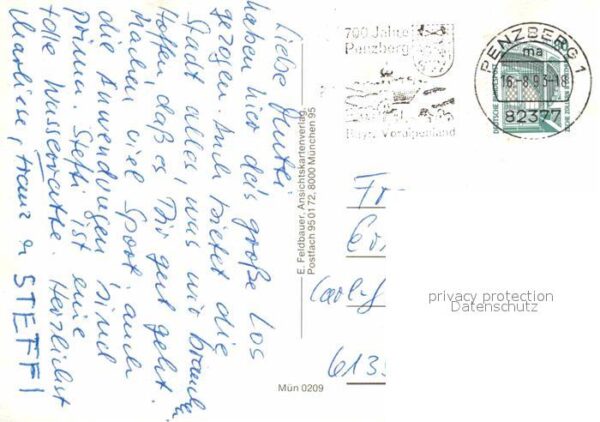 Liebe Mutti
haben hier das große Los
gezogen. Auch bietet die
Stadt alles, was wir brauchen.
Hoffen daß es Dir gut geht.
Machen viel Sport, auch
die Anwendungen sind
prima. Steffi ist eine
tolle Wasserratte. Herzlichst
Marliese, Franz u STEFFI
E. Feldbauer, Ansichtskartenverlag
Postfach 95 01 72, 8000 München 95
Mün 0209
700 Jahre
Penzberg
Bayr. Voralpenland
PENZBERG 1
ma
16.-8.93-18
82377
DEUTSCHE BUNDESPOST
Fr
Carl-
613
privacy protection
Datenschutz